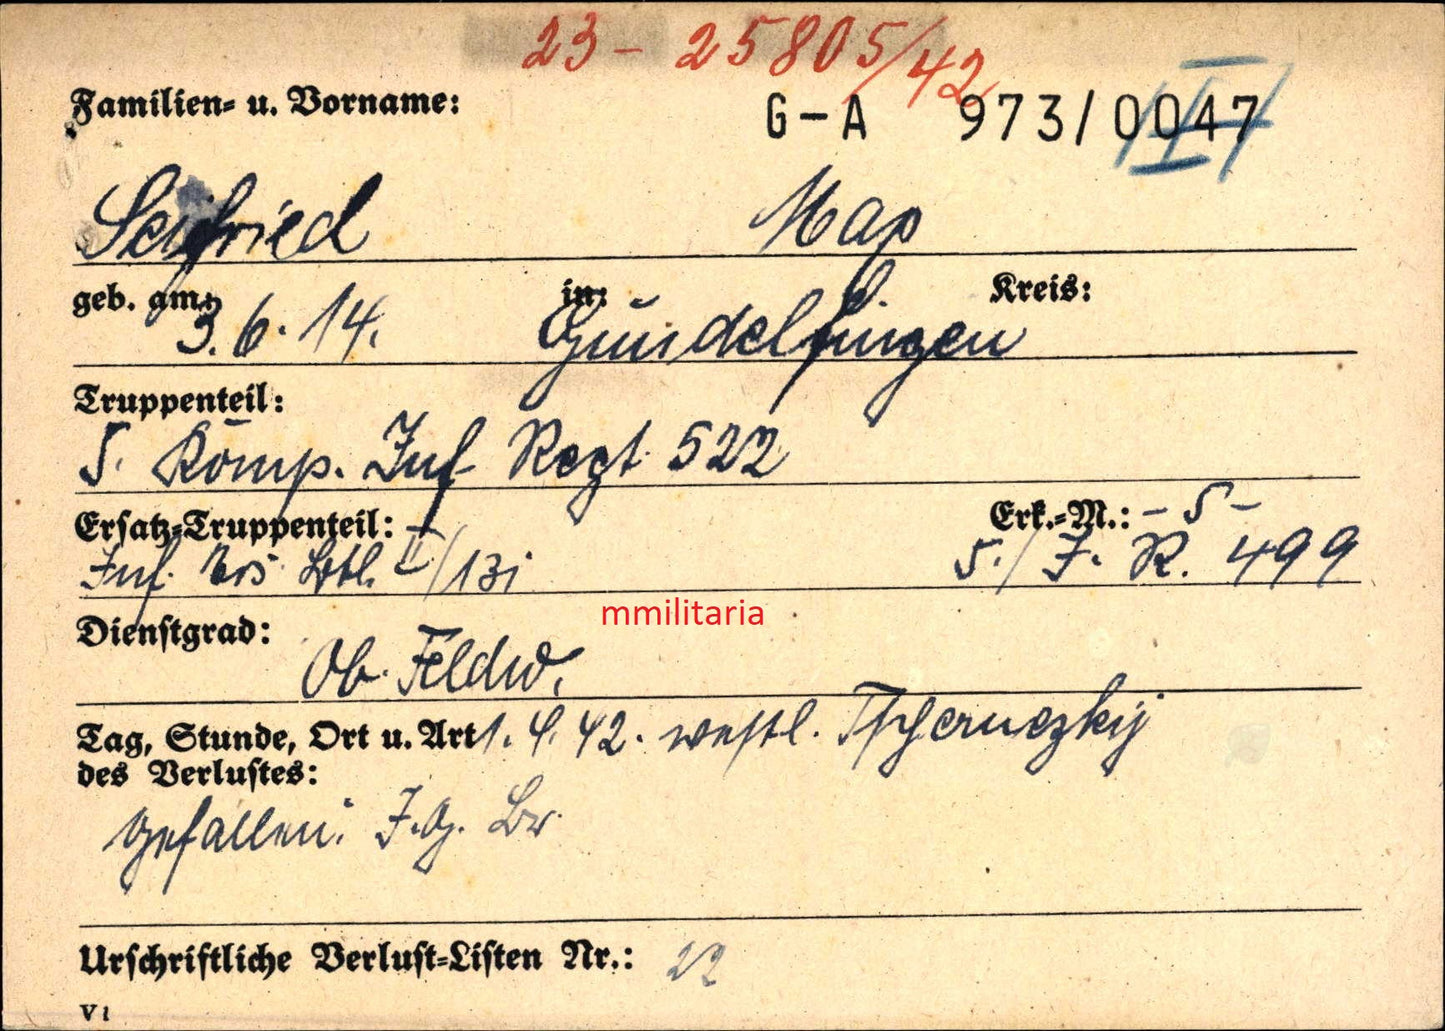 23 - 25805/42
Familien- u. Vorname:
G-A 973/0047
Seifried Max
geb. am: in: Kreis:
3.6.14. Gundelfingen
Truppenteil:
5. Komp. Inf Regt 522
Ersatz-Truppenteil: Erk.-M.: - 5 -
Inf. Ers. Btl. II/13i 5./ J. R. 499
mmilitaria
Dienstgrad:
Ob. Feldw.
Tag, Stunde, Ort u. Art 1. 4. 42. westl.
des Verlustes:
gefallen. J.G.
Urschriftliche Verlust-Listen Nr.: 22
V 1